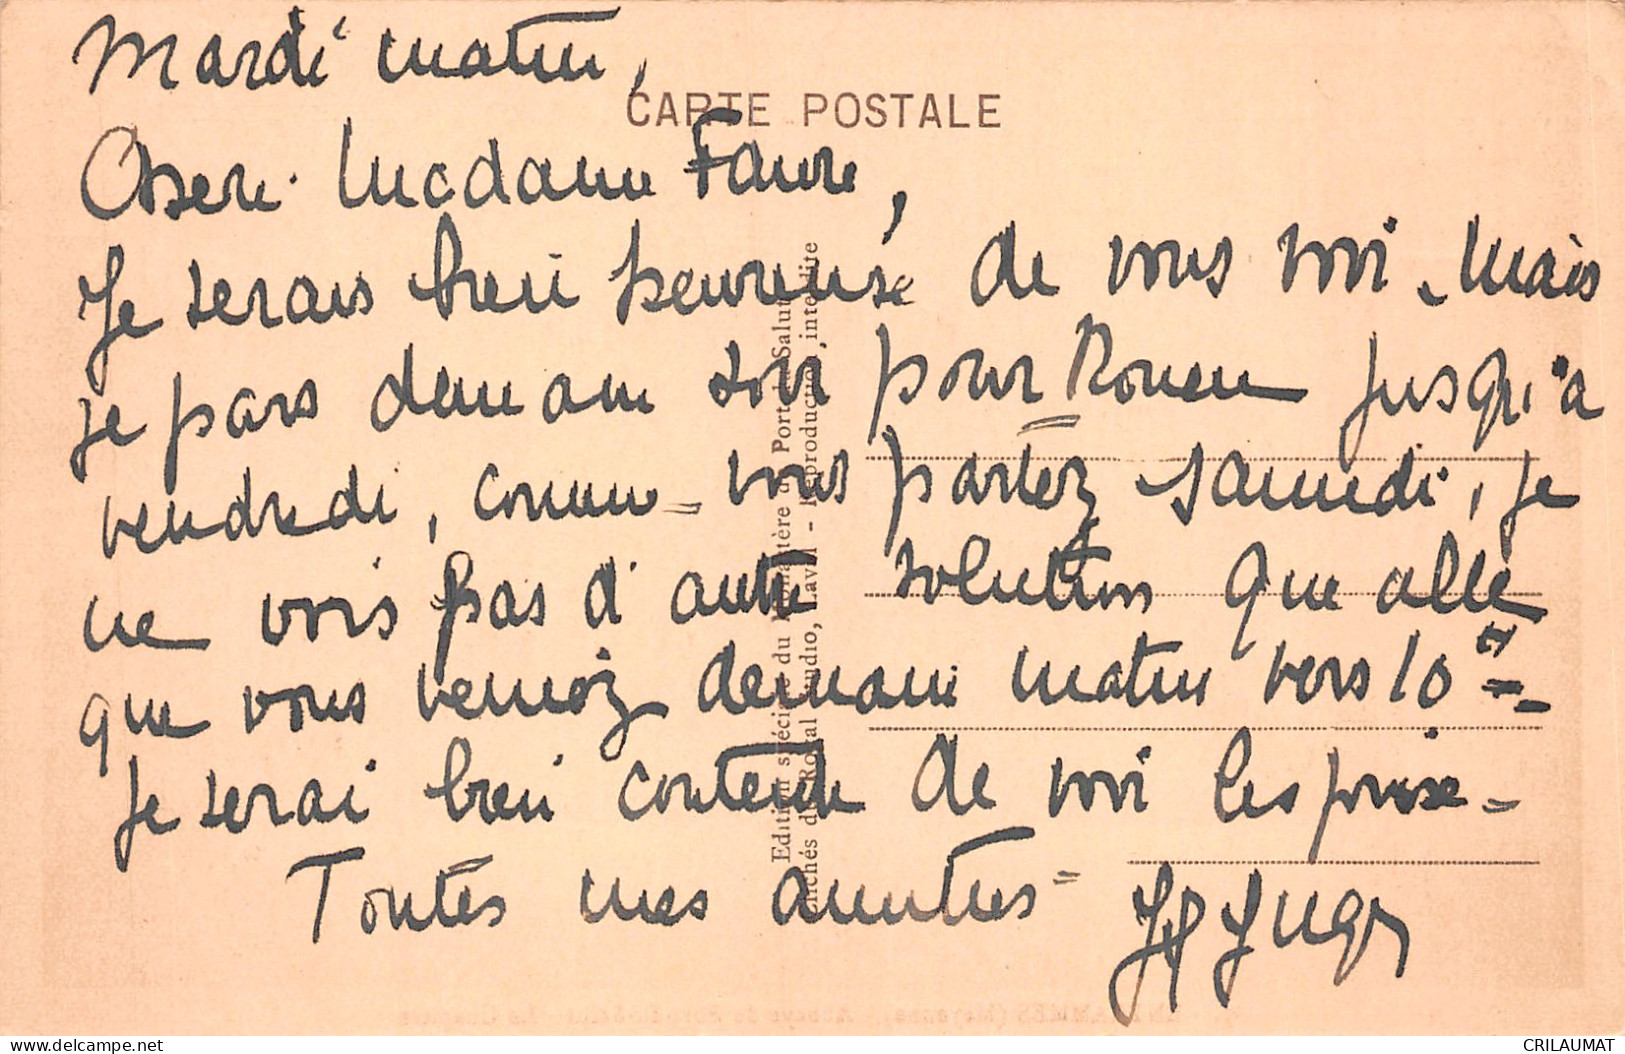 Mardi matin,
CARTE POSTALE
Chère Madame Faure,
Je serais bien heureuse de vous voir. Mais
je pars demain soir pour Rouen jusqu'à
vendredi, comme vous partez samedi, je
ne vois pas d'autre solution que celle
que vous veniez demain matin vers 10 h
Je serai bien contente de voir les
Toutes mes amitiés
Edition spéciale du Monastère de Port-du-Salut
Clichés du Royal Studio, Laval - Reproduction interdite
ENTRAMMES (Mayenne) - Abbaye de Port-du-Salut - Le Chapitre
delcampe.net
CRILAUMAT